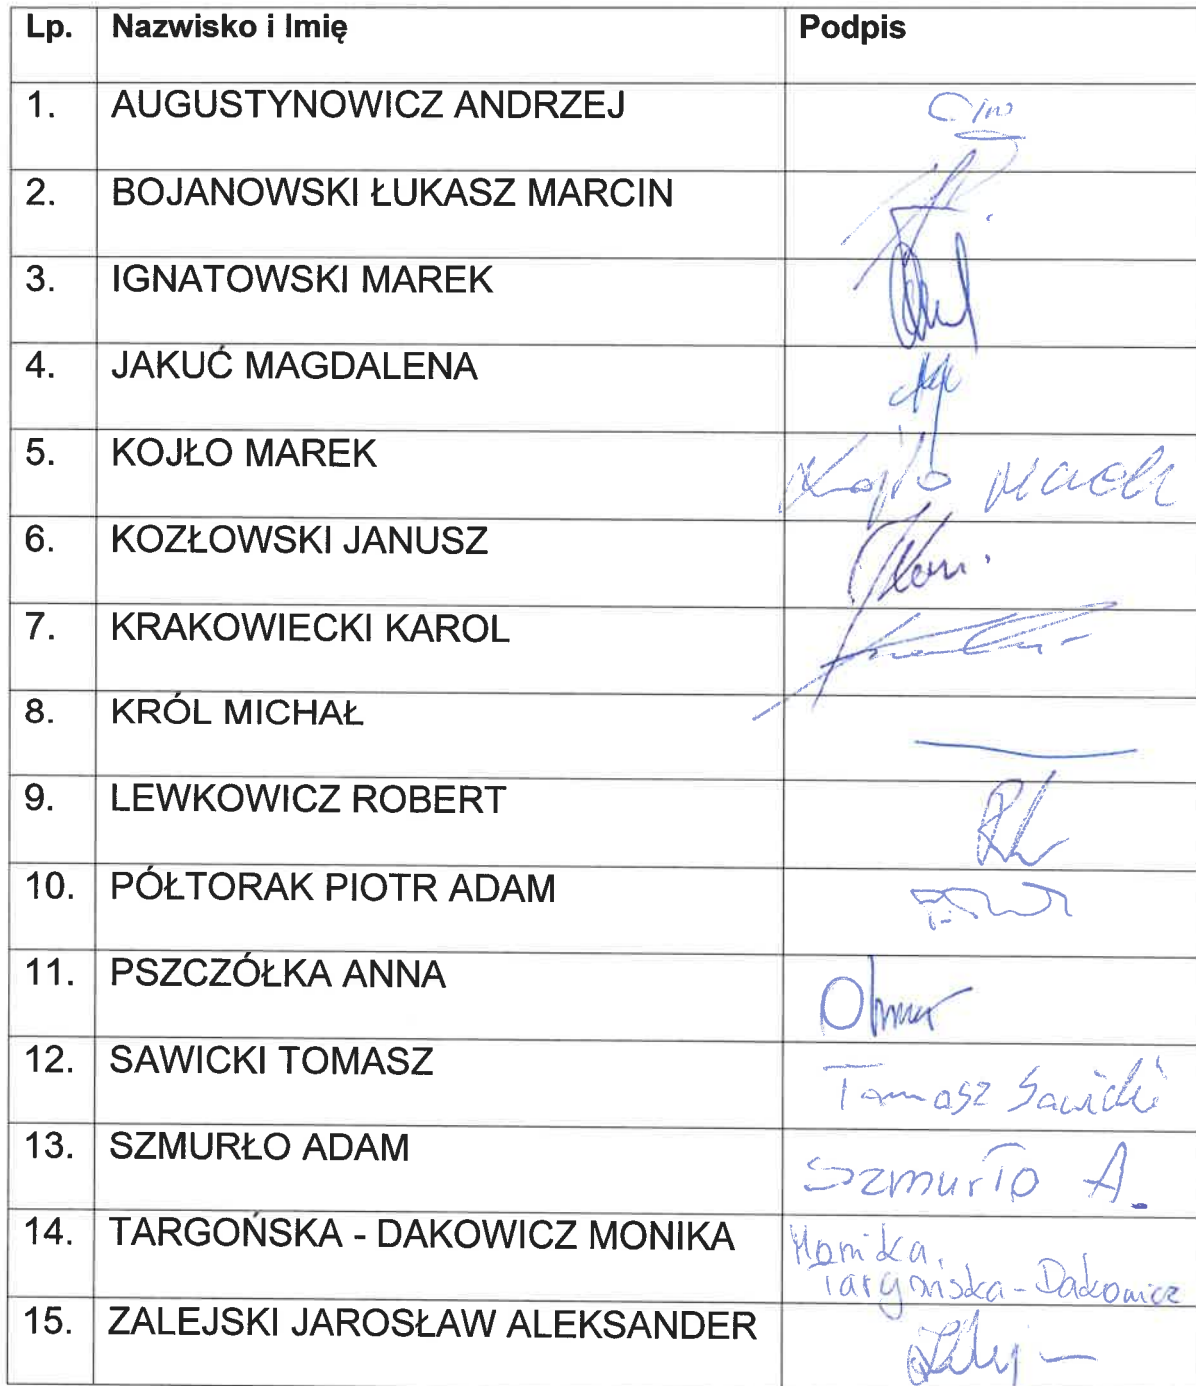 Lp. Nazwisko i Imię Podpis
1. AUGUSTYNOWICZ ANDRZEJ
2. BOJANOWSKI ŁUKASZ MARCIN
3. IGNATOWSKI MAREK
4. JAKUĆ MAGDALENA
5. KOJŁO MAREK Kojło Marek
6. KOZŁOWSKI JANUSZ
7. KRAKOWIECKI KAROL
8. KRÓL MICHAŁ
9. LEWKOWICZ ROBERT
10. PÓŁTORAK PIOTR ADAM
11. PSZCZÓŁKA ANNA
12. SAWICKI TOMASZ Tomasz Sawicki
13. SZMURŁO ADAM Szmurło A.
14. TARGOŃSKA - DAKOWICZ MONIKA Monika
Targońska-Dakowicz
15. ZALEJSKI JAROSŁAW ALEKSANDER